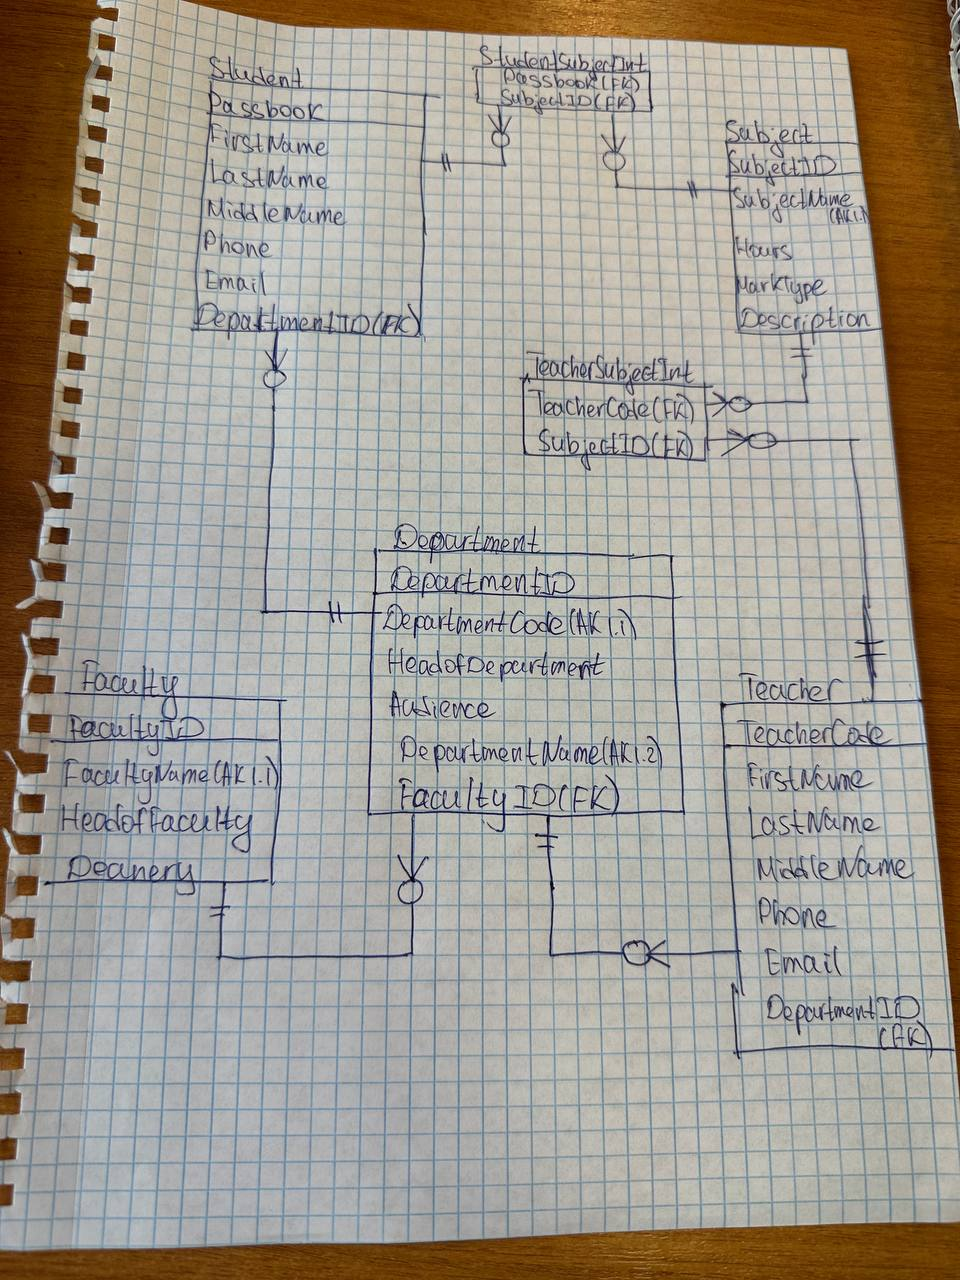 Student
Passbook
FirstName
LastName
MiddleName
Phone
Email
DepartmentID(FK)
StudentSubjectInt
Passbook(FK)
SubjectID(FK)
Subject
SubjectID
SubjectName
(AK1.1)
Hours
MarkType
Description
TeacherSubjectInt
TeacherCode(FK)
SubjectID(FK)
Department
DepartmentID
DepartmentCode(AK1.1)
HeadofDepartment
Audience
DepartmentName(AK1.2)
FacultyID(FK)
Faculty
FacultyID
FacultyName(AK1.1)
HeadofFaculty
Deanery
Teacher
TeacherCode
FirstName
LastName
MiddleName
Phone
Email
DepartmentID
(FK)